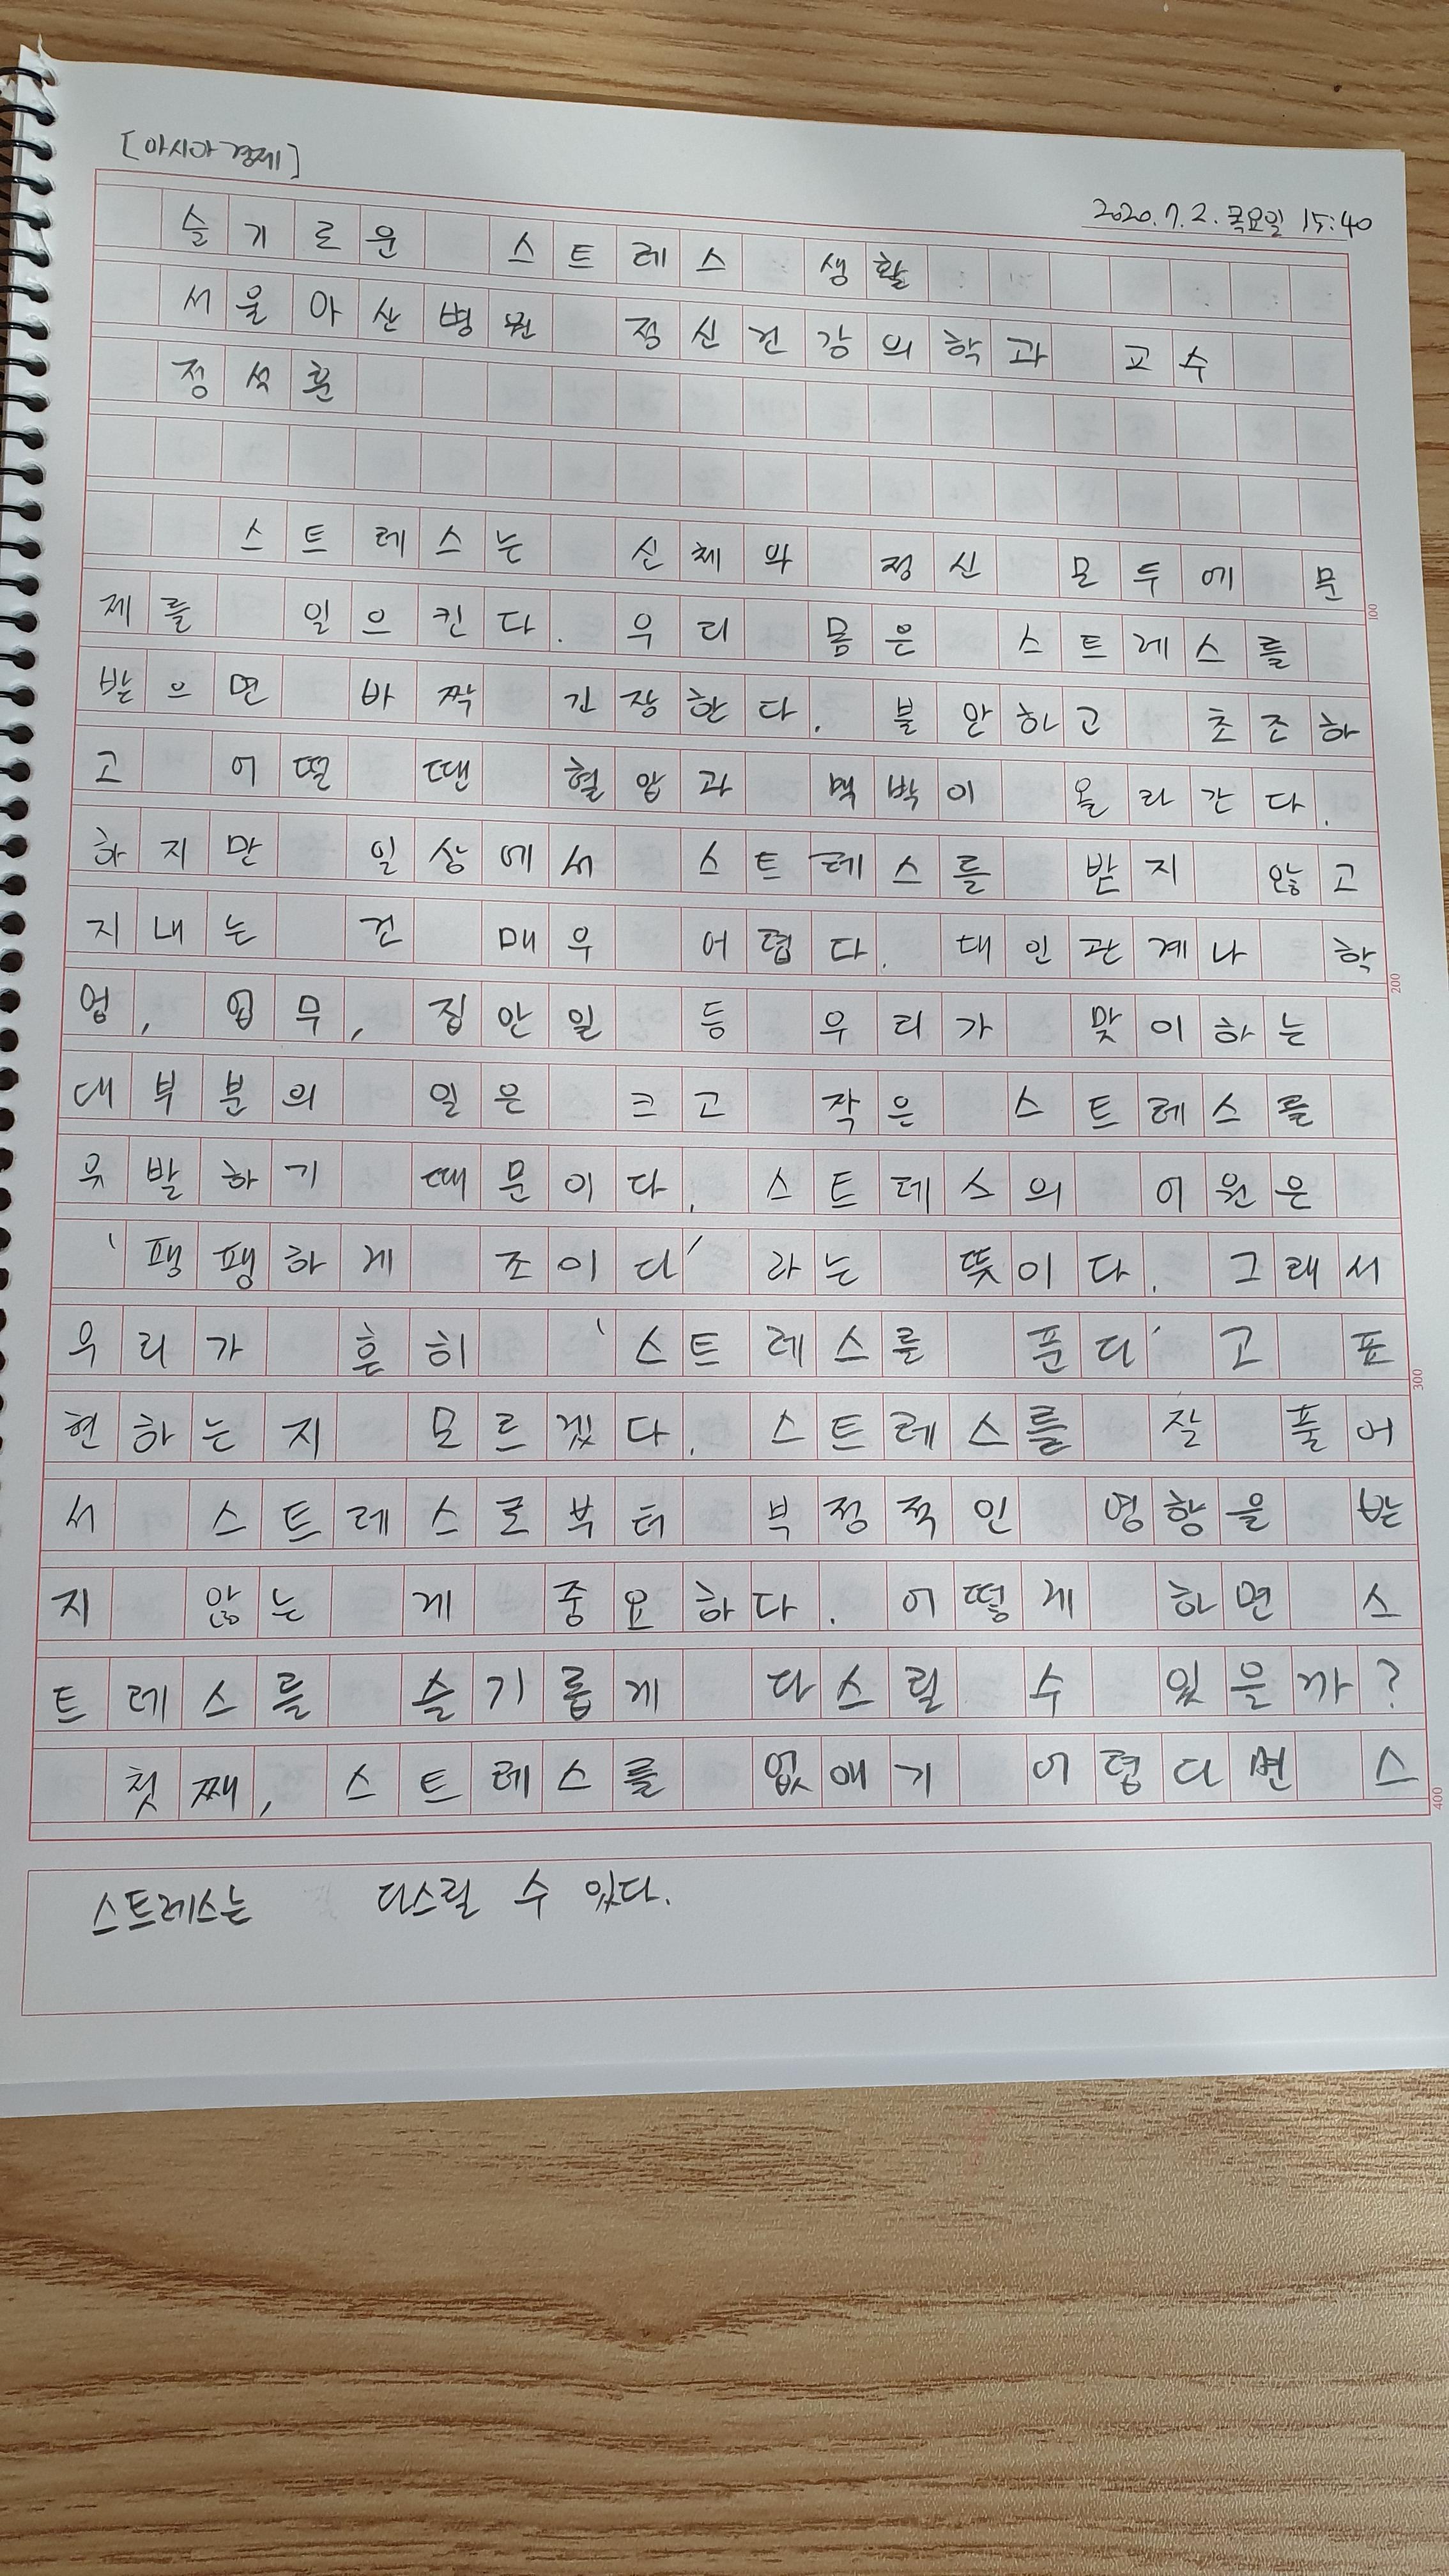 [아시아경제]
2020.7.2.목요일 15:40
슬기로운 스트레스 생활
서울아산병원 정신건강의학과 교수
정석훈
스트레스는 신체와 정신 모두에 문
제를 일으킨다. 우리 몸은 스트레스를
받으면 바짝 긴장한다. 불안하고 초조하
고 어떤 땐 혈압과 맥박이 올라간다.
하지만 일상에서 스트레스를 받지 않고
지내는 건 매우 어렵다. 대인관계나 학
업, 업무, 집안일 등 우리가 맞이하는
대부분의 일은 크고 작은 스트레스를
유발하기 때문이다. 스트레스의 어원은
'팽팽하게 조이다'라는 뜻이다. 그래서
우리가 흔히 '스트레스를 푼다'고 표
현하는지 모르겠다. 스트레스를 잘 풀어
서 스트레스로부터 부정적인 영향을 받
지 않는 게 중요하다. 어떻게 하면 스
트레스를 슬기롭게 다스릴 수 있을까?
첫째, 스트레스를 없애기 어렵다면 스
100
200
300
400
스트레스는 다스릴 수 있다.